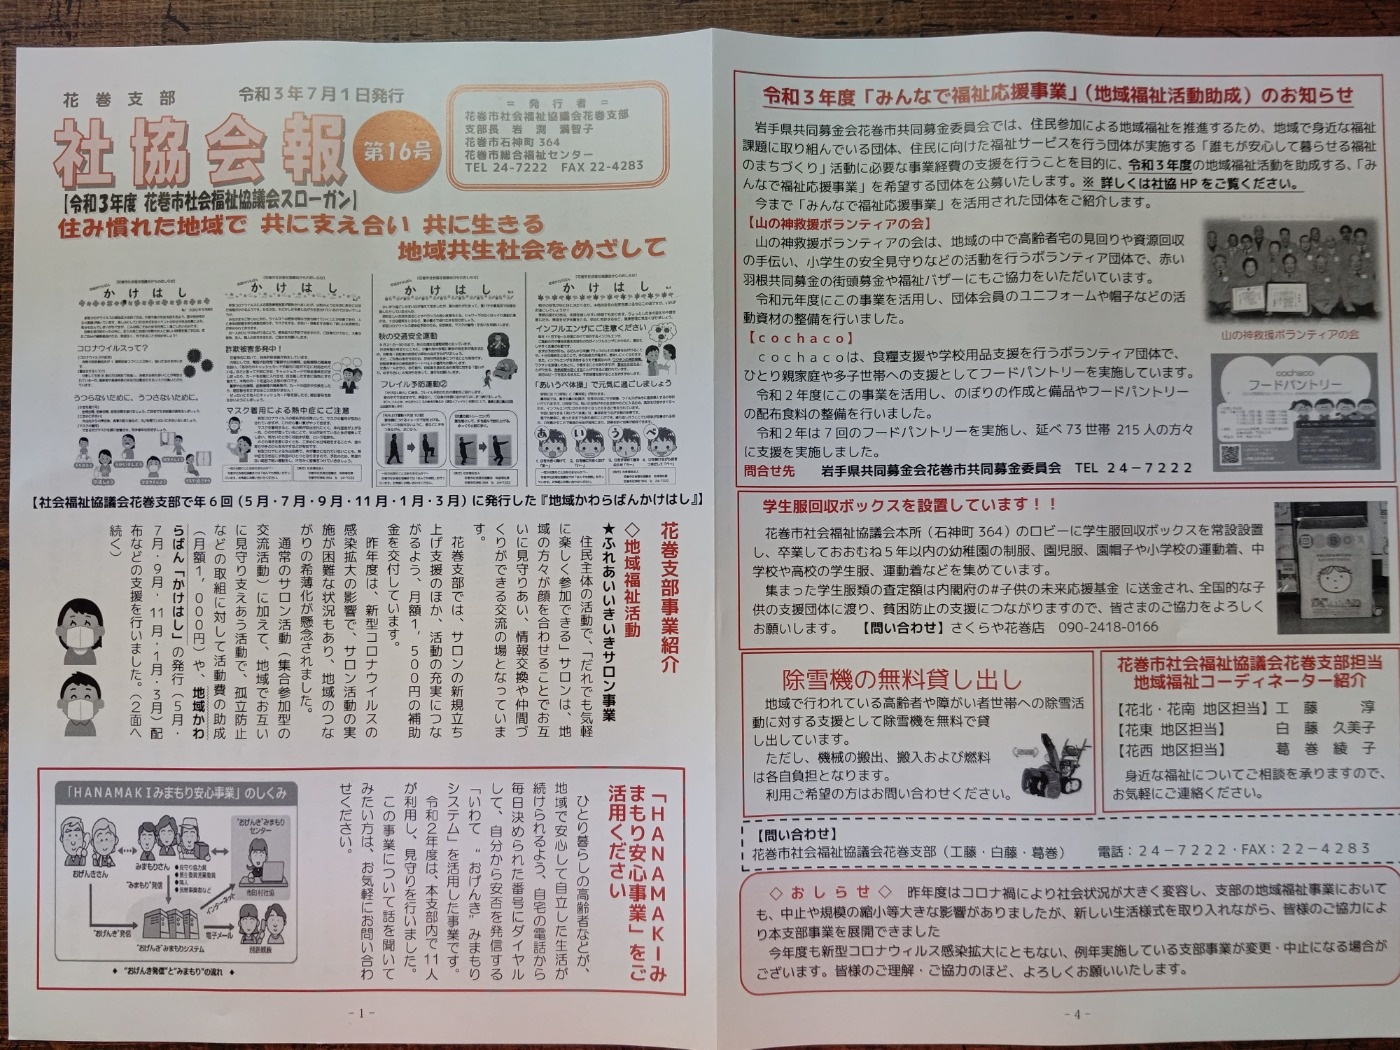 花巻支部
令和3年7月1日発行
社協会報
第16号
= 発行者 =
花巻市社会福祉協議会花巻支部
支部長 岩渕 満智子
花巻市石神町364
花巻市総合福祉センター
TEL 24-7222 FAX 22-4283
【令和3年度 花巻市社会福祉協議会スローガン】
住み慣れた地域で 共に支え合い 共に生きる
地域共生社会をめざして
かけはし
コロナウイルスって?
うつらないために、うつさないために。
かけはし
詐欺被害多発中!
マスク着用による熱中症にご注意
かけはし
秋の交通安全運動
フレイル予防運動②
かけはし
インフルエンザにご注意ください
「あいうべ体操」で元気に過ごしましょう
あ
い
う
べ
【社会福祉協議会花巻支部で年6回(5月・7月・9月・11月・1月・3月)に発行した『地域かわらばんかけはし』】
花巻支部事業紹介
◇地域福祉活動
★ふれあいいきいきサロン事業
住民主体の活動で、「だれでも気軽
に楽しく参加できる」サロンは、地
域の方々が顔を合わせることでお互
いに見守りあい、情報交換や仲間づ
くりができる交流の場となっていま
す。
花巻支部では、サロンの新規立ち
上げ支援のほか、活動の充実につな
がるよう、月額1,500円の補助
金を交付しています。
昨年度は、新型コロナウイルスの
感染拡大の影響で、サロン活動の実
施が困難な状況もあり、地域のつな
がりの希薄化が懸念されました。
通常のサロン活動(集合参加型の
交流活動)に加えて、地域でお互い
に見守り支えあう活動で、孤立防止
などの取組に対して活動費の助成
(月額1,000円)や、地域かわ
らばん「かけはし」の発行(5月・
7月・9月・11月・1月・3月)配
布などの支援を行いました。(2面へ
続く)
「HANAMAKIみ
まもり安心事業」をご
活用ください
ひとり暮らしの高齢者などが、
地域で安心して自立した生活が
続けられるよう、自宅の電話から
毎日決められた番号にダイヤル
して、自分から安否を発信する
「いわて“おげんき”みまもり
システム」を活用した事業です。
令和2年度は、本支部内で11人
が利用し、見守りを行いました。
この事業について話を聞いて
みたい方は、お気軽にお問い合わ
せください。
「HANAMAKIみまもり安心事業」のしくみ
おげんきさん
みまもりさん
●見守り協力員
●民生委員児童委員
●隣人
“おげんき”みまもり
センター
市町村社協
“みまもり”発信
インターネット
“おげんき”発信
電子メール
“おげんき”みまもりシステム
別居親族
♦ “おげんき発信”と“みまもり”の流れ ♦
- 1 -
令和3年度「みんなで福祉応援事業」(地域福祉活動助成)のお知らせ
岩手県共同募金会花巻市共同募金委員会では、住民参加による地域福祉を推進するため、地域で身近な福祉
課題に取り組んでいる団体、住民に向けた福祉サービスを行う団体が実施する「誰もが安心して暮らせる福祉
のまちづくり」活動に必要な事業経費の支援を行うことを目的に、令和3年度の地域福祉活動を助成する、「み
んなで福祉応援事業」を希望する団体を公募いたします。※ 詳しくは社協HPをご覧ください。
今まで「みんなで福祉応援事業」を活用された団体をご紹介します。
【山の神救援ボランティアの会】
山の神救援ボランティアの会は、地域の中で高齢者宅の見回りや資源回収
の手伝い、小学生の安全見守りなどの活動を行うボランティア団体で、赤い
羽根共同募金の街頭募金や福祉バザーにもご協力をいただいています。
令和元年度にこの事業を活用し、団体会員のユニフォームや帽子などの活
動資材の整備を行いました。
山の神救援ボランティアの会
【cochaco】
cochacoは、食糧支援や学校用品支援を行うボランティア団体で、
ひとり親家庭や多子世帯への支援としてフードパントリーを実施しています。
令和2年度にこの事業を活用し、のぼりの作成と備品やフードパントリー
の配布食料の整備を行いました。
令和2年は7回のフードパントリーを実施し、延べ73世帯 215人の方々
に支援を実施しました。
cochaco
フードパントリー
問合せ先 岩手県共同募金会花巻市共同募金委員会 TEL 24-7222
学生服回収ボックスを設置しています!!
花巻市社会福祉協議会本所(石神町364)のロビーに学生服回収ボックスを常設設置
し、卒業しておおむね5年以内の幼稚園の制服、園児服、園帽子や小学校の運動着、中
学校や高校の学生服、運動着などを集めています。
集まった学生服類の査定額は内閣府の#子供の未来応援基金 に送金され、全国的な子
供の支援団体に渡り、貧困防止の支援につながりますので、皆さまのご協力をよろしく
お願いします。 【問い合わせ】さくらや花巻店 090-2418-0166
除雪機の無料貸し出し
地域で行われている高齢者や障がい者世帯への除雪活
動に対する支援として除雪機を無料で貸
し出しています。
ただし、機械の搬出、搬入および燃料
は各自負担となります。
利用ご希望の方はお問い合わせください。
花巻市社会福祉協議会花巻支部担当
地域福祉コーディネーター紹介
【花北・花南 地区担当】工藤 淳
【花東 地区担当】 白藤 久美子
【花西 地区担当】 葛巻 綾子
身近な福祉についてご相談を承りますので、
お気軽にご連絡ください。
【問い合わせ】
花巻市社会福祉協議会花巻支部(工藤・白藤・葛巻) 電話:24-7222・FAX:22-4283
◇おしらせ◇ 昨年度はコロナ禍により社会状況が大きく変容し、支部の地域福祉事業において
も、中止や規模の縮小等大きな影響がありましたが、新しい生活様式を取り入れながら、皆様のご協力によ
り本支部事業を展開できました
今年度も新型コロナウィルス感染拡大にともない、例年実施している支部事業が変更・中止になる場合が
ございます。皆様のご理解・ご協力のほど、よろしくお願いいたします。
- 4 -